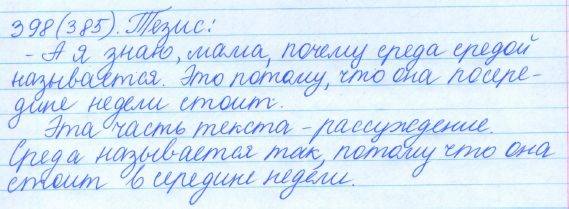 398(385). Тезис:
- А я знаю, мама, почему среда средой
называется. Это потому, что она посере-
дине недели стоит.
Эта часть текста - рассуждение.
Среда называется так, потому что она
стоит в середине недели.